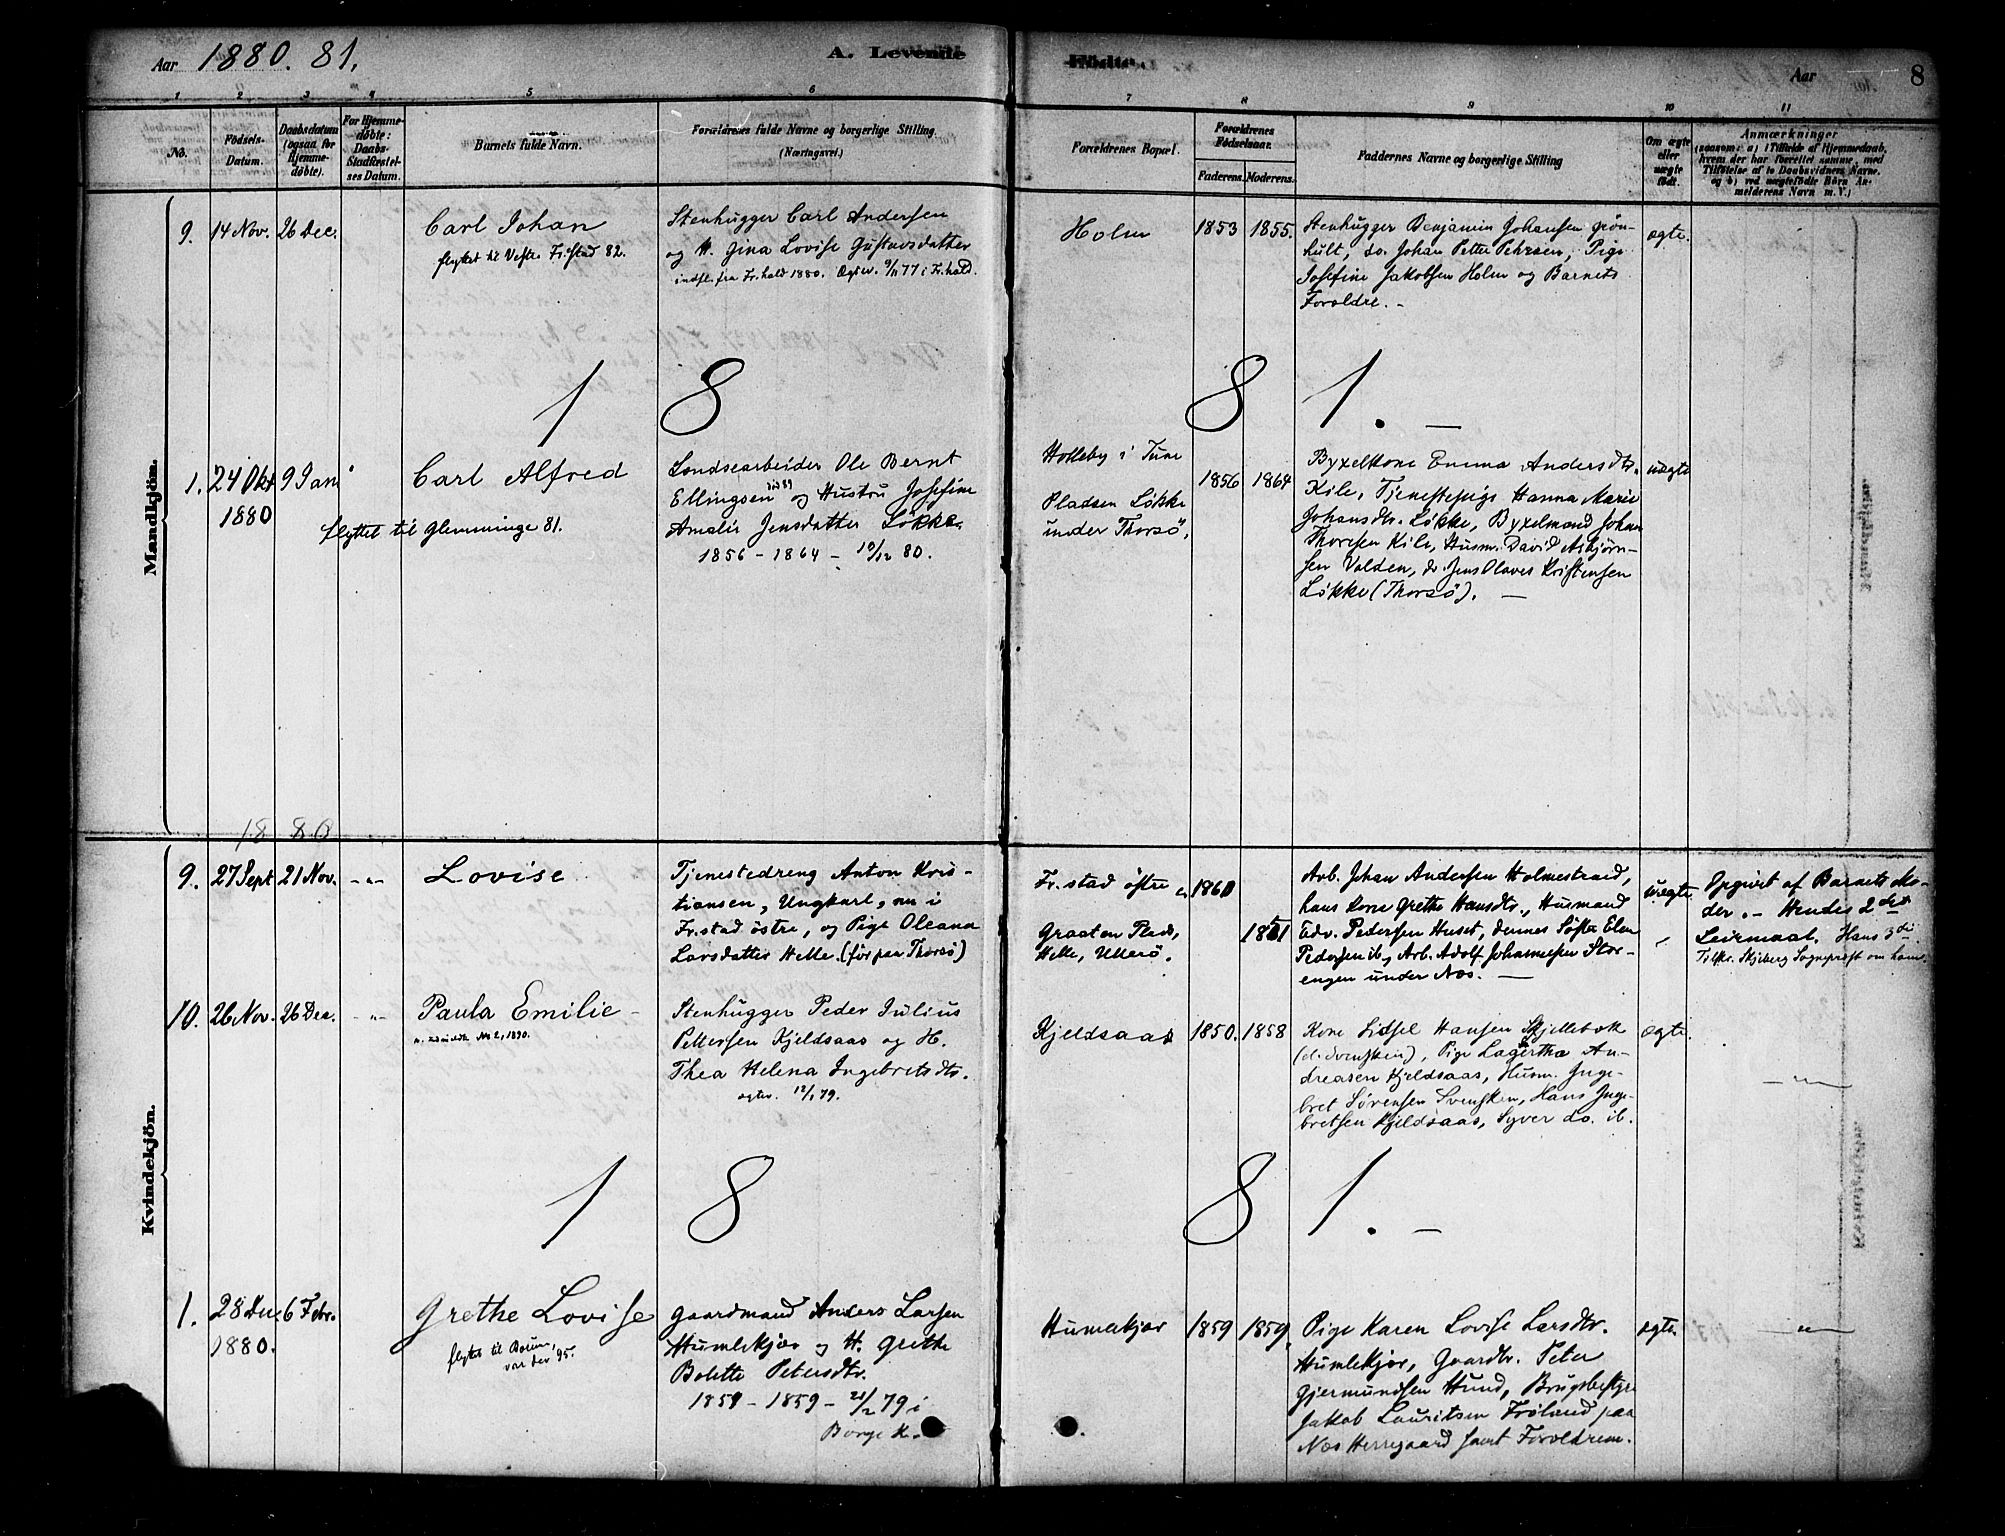 Aar 1880. 81.
A. Levende
Födte.
Aar
8
1 2 3 4 5 6 7 8 9 10 11
No.
Födsels-
Datum.
Daabsdatum
(ogsaa for
Hjemme-
døbte).
For Hjemme-
døbte:
Daabs-
Stadfæstel-
ses Datum.
Barnets fulde Navn.
Forældrenes fulde Navne og borgerlige Stilling.
(Næringsvei.)
Forældrenes Bopæl.
Forældrenes
Fødselsaar.
Faderens. Moderens.
Faddernes Navne og borgerlige Stilling
Om ægte
eller
uægte
født.
Anmærkninger
(saasom: a) i Tilfælde af Hjemmedaab,
hvem der har forrettet samme, med
Tilføielse af to Daabsvidners Navne.
og b) ved uægtefødte Börn An-
melderens Navn m. V.)
Mandkjön.
9. 14 Nov. 26 Dec.
Carl Johan
flyttet til Vestre Fr.stad 82.
Stenhugger Carl Andersen
og H. Gina Lovise Gustavsdatter
indfl. fra Fr.hald 1880. Ægtev. 9/11 77 i Fr.hald.
Holm
1853 1855.
Stenhugger Benjamin Johansen Grøn-
hult, do. Johan Petter Pehrsen, Pige
Josefine Jakobsen Holm og Barnets
Forældre. -
ægte.
1 8 8 1. -
1. 24 Okt 9 Jan
1880
Carl Alfred
flyttet til Glemminge 81.
Landsearbeider Ole Bernt
Ellingsen og Hustru Josefine
Amalie Jensdatter Løkke.
1856 - 1864 - 19/12 80.
Holleby i Tune
Pladsen Løkke
under Thorsø.
1856 1864
Byxelkone Emma Andersdtr.
Kile, Tjenestepige Hanna Marie
Johansdtr. Løkke, Byxelmand Johan
Thoresen Kile, Husm. David Asbjørn-
sen Valden, do. Jens Olaves Kristensen
Løkke (Thorsø). -
uægte
18 80
Kvindekjön.
9. 27 Sept 21 Nov. -"-
Lovise
Tjenestedreng Anton Kris-
tiansen, Ungkarl, nu i
Fr.stad östre, og Pige Oleana
Larsdatter Helle. (før paa Thorsø)
Fr.stad östre
Graaten Plads,
Helle, Ullerø.
1860
1861
Arb. Johan Andersen Holmestrand,
hans Kone Grethe Hansdtr., Husmand
Edv. Pedersen Huset, dennes Søster Elen
Pedersen ib., Arb. Adolf Johannesen Stor-
engen under Næs. -
uægte
Opgivet af Barnets Mo-
der. - Hendes 2det
Leirmaal. Hans 3di.
Tilskr. Skjeberg Sognepræst om ham
10. 26 Nov. 26 Dec. -"-
Paula Emilie -
No. 2, 1890.
Stenhugger Peder Julius
Pettersen Kjeldsaas og H.
Thea Helena Ingebretsdtr.
ægtev. 12/1 79.
Kjeldsaas
1850. 1858
Kone Lidsel Hansen Skjellebæk
(d. Svensken), Pige Lagertha An-
dreasen Kjeldsaas, Husm. Inge-
bret Sørensen Svensken, Hans Inge-
bretsen Kjeldsaas, Syver do. ib.
ægte.
-"-
1 8 8 1. -
1. 28 Dec. 6 Febr.
1880.
Grethe Lovise
flyttet til
var der 95.
Gaardmand Anders Larsen
Humlekjær og H. Grethe
Bolette Petersdtr.
1859 - 1859 - 21/2 79 i
Borge K.
Humlekjær
1859 1859
Pige Karen Lovise Larsdtr.
Humlekjær, Gaardbr. Peter
Gjermundsen Hund, Brugsbestyrer
Jakob Lauritsen Frøland paa
Næs Herregaard samt Forældrene.
ægte.
-"-